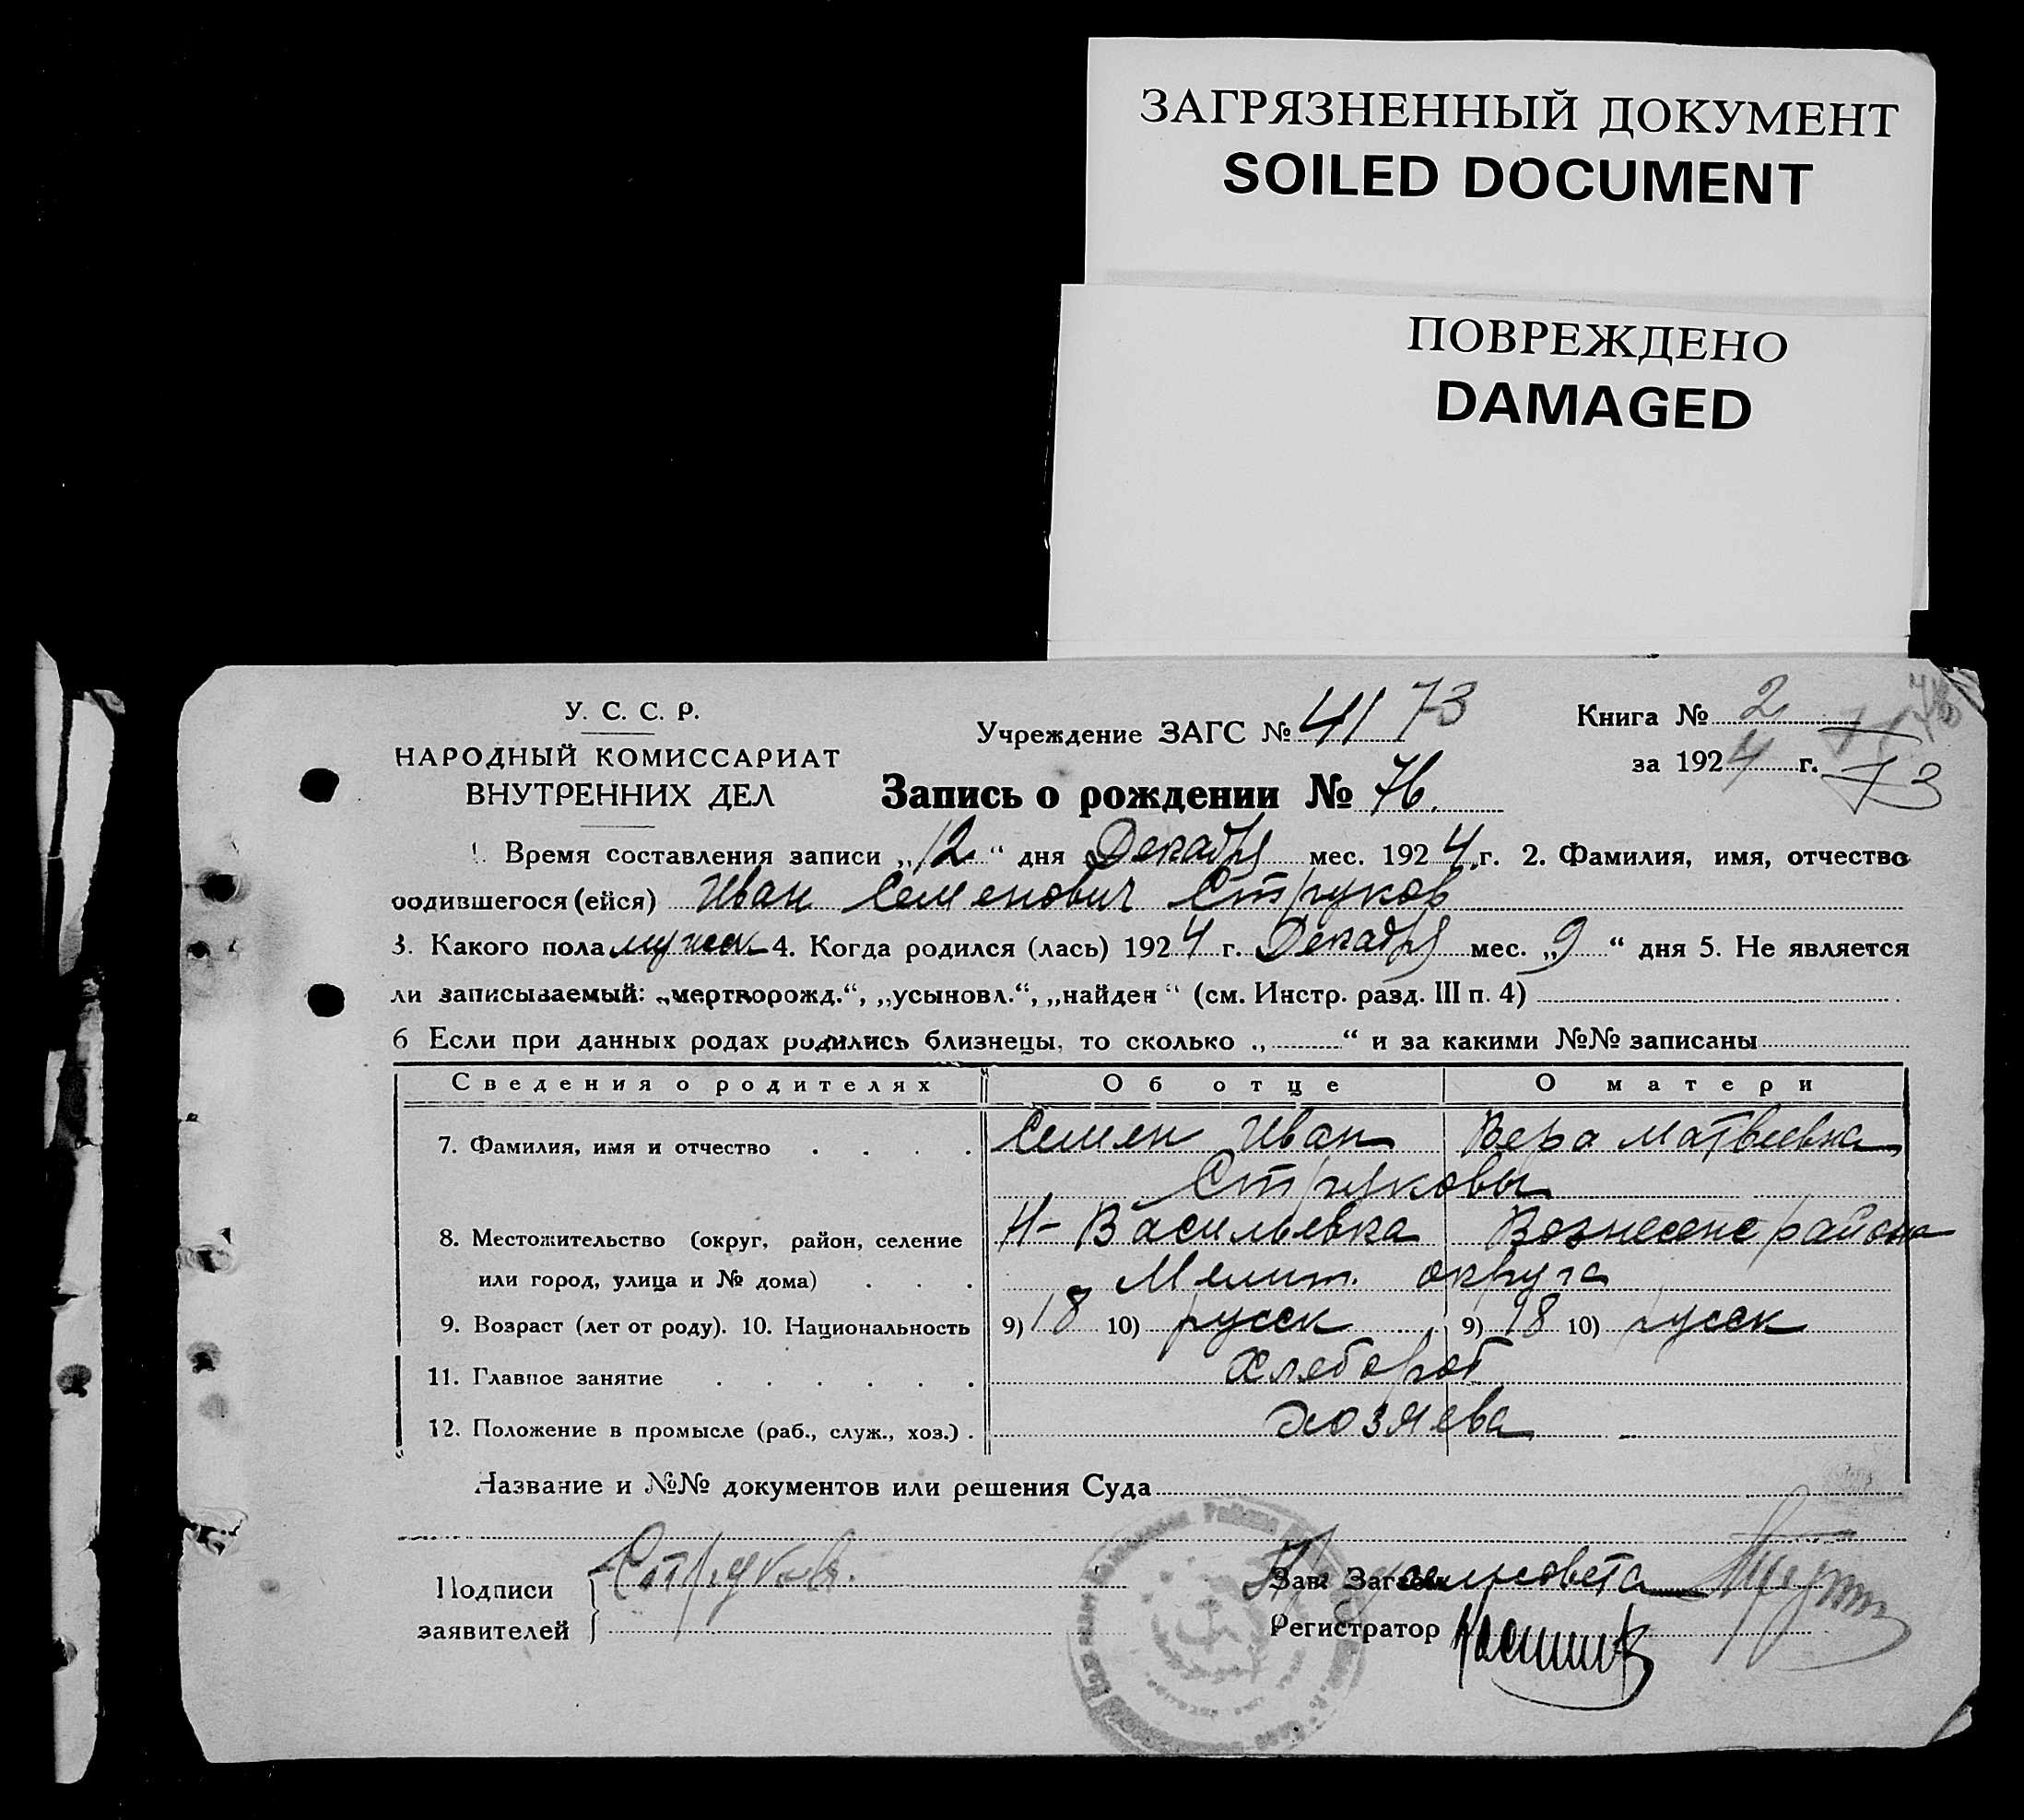 ЗАГРЯЗНЕННЫЙ ДОКУМЕНТ
SOILED DOCUMENT
ПОВРЕЖДЕНО
DAMAGED
У. С. С. Р.
НАРОДНЫЙ КОМИССАРИАТ
ВНУТРЕННИХ ДЕЛ
Учреждение ЗАГС № 41 73
Книга № 2
за 1924 г. 73
Запись о рождении № 76.
1. Время составления записи „12“ дня Декабря мес. 1924 г. 2. Фамилия, имя, отчество
родившегося (ейся) Иван Семенович Струков
3. Какого пола мужск 4. Когда родился (лась) 1924 г. Декабря мес. „9“ дня 5. Не является
ли записываемый: „мертворожд.“, „усыновл.“, „найден“ (см. Инстр. разд. III п. 4)
6 Если при данных родах родились близнецы, то сколько „ “ и за какими №№ записаны
Сведения о родителях Об отце О матери
7. Фамилия, имя и отчество Семен Иван Вера Матвеевна
Струковы
8. Местожительство (округ, район, селение Н-Васильевка Вознесенс района
или город, улица и № дома) Мелит. округа
9. Возраст (лет от роду). 10. Национальность 9) 18 10) русск 9) 18 10) русск
11. Главное занятие хлебороб
12. Положение в промысле (раб., служ., хоз.) хозяева
Название и №№ документов или решения Суда
Подписи Струков. Зав. Загсом сельсовета
заявителей Регистратор